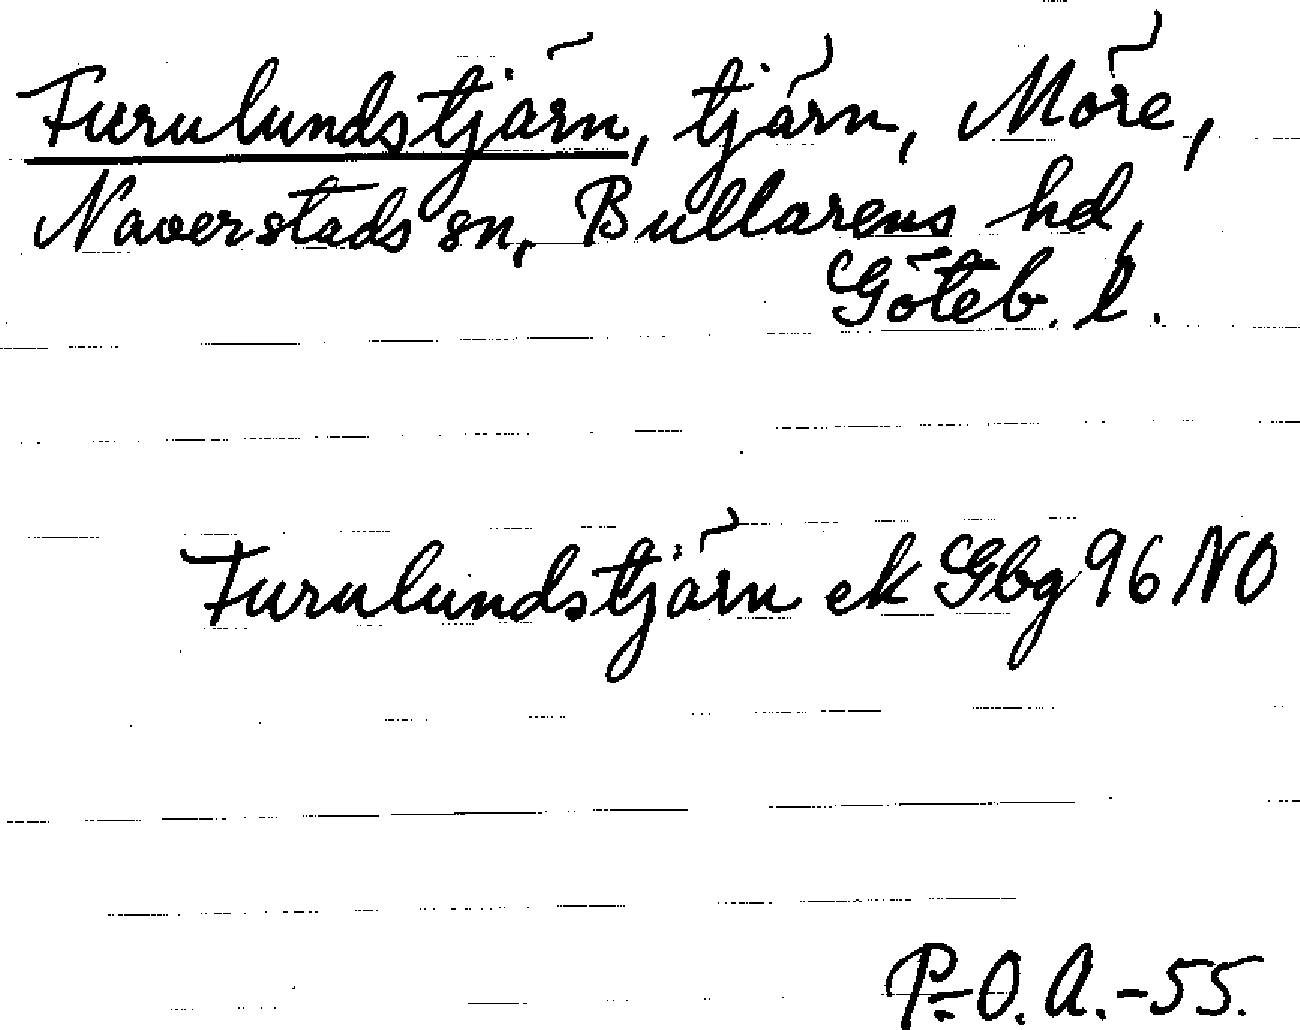 Furulundstjärn, tjärn, Möre,
Naverstads sn, Bullarens hd,
Göteb. l.
Furulundstjärn ek Gbg 96 NO
P-O. A. -55.